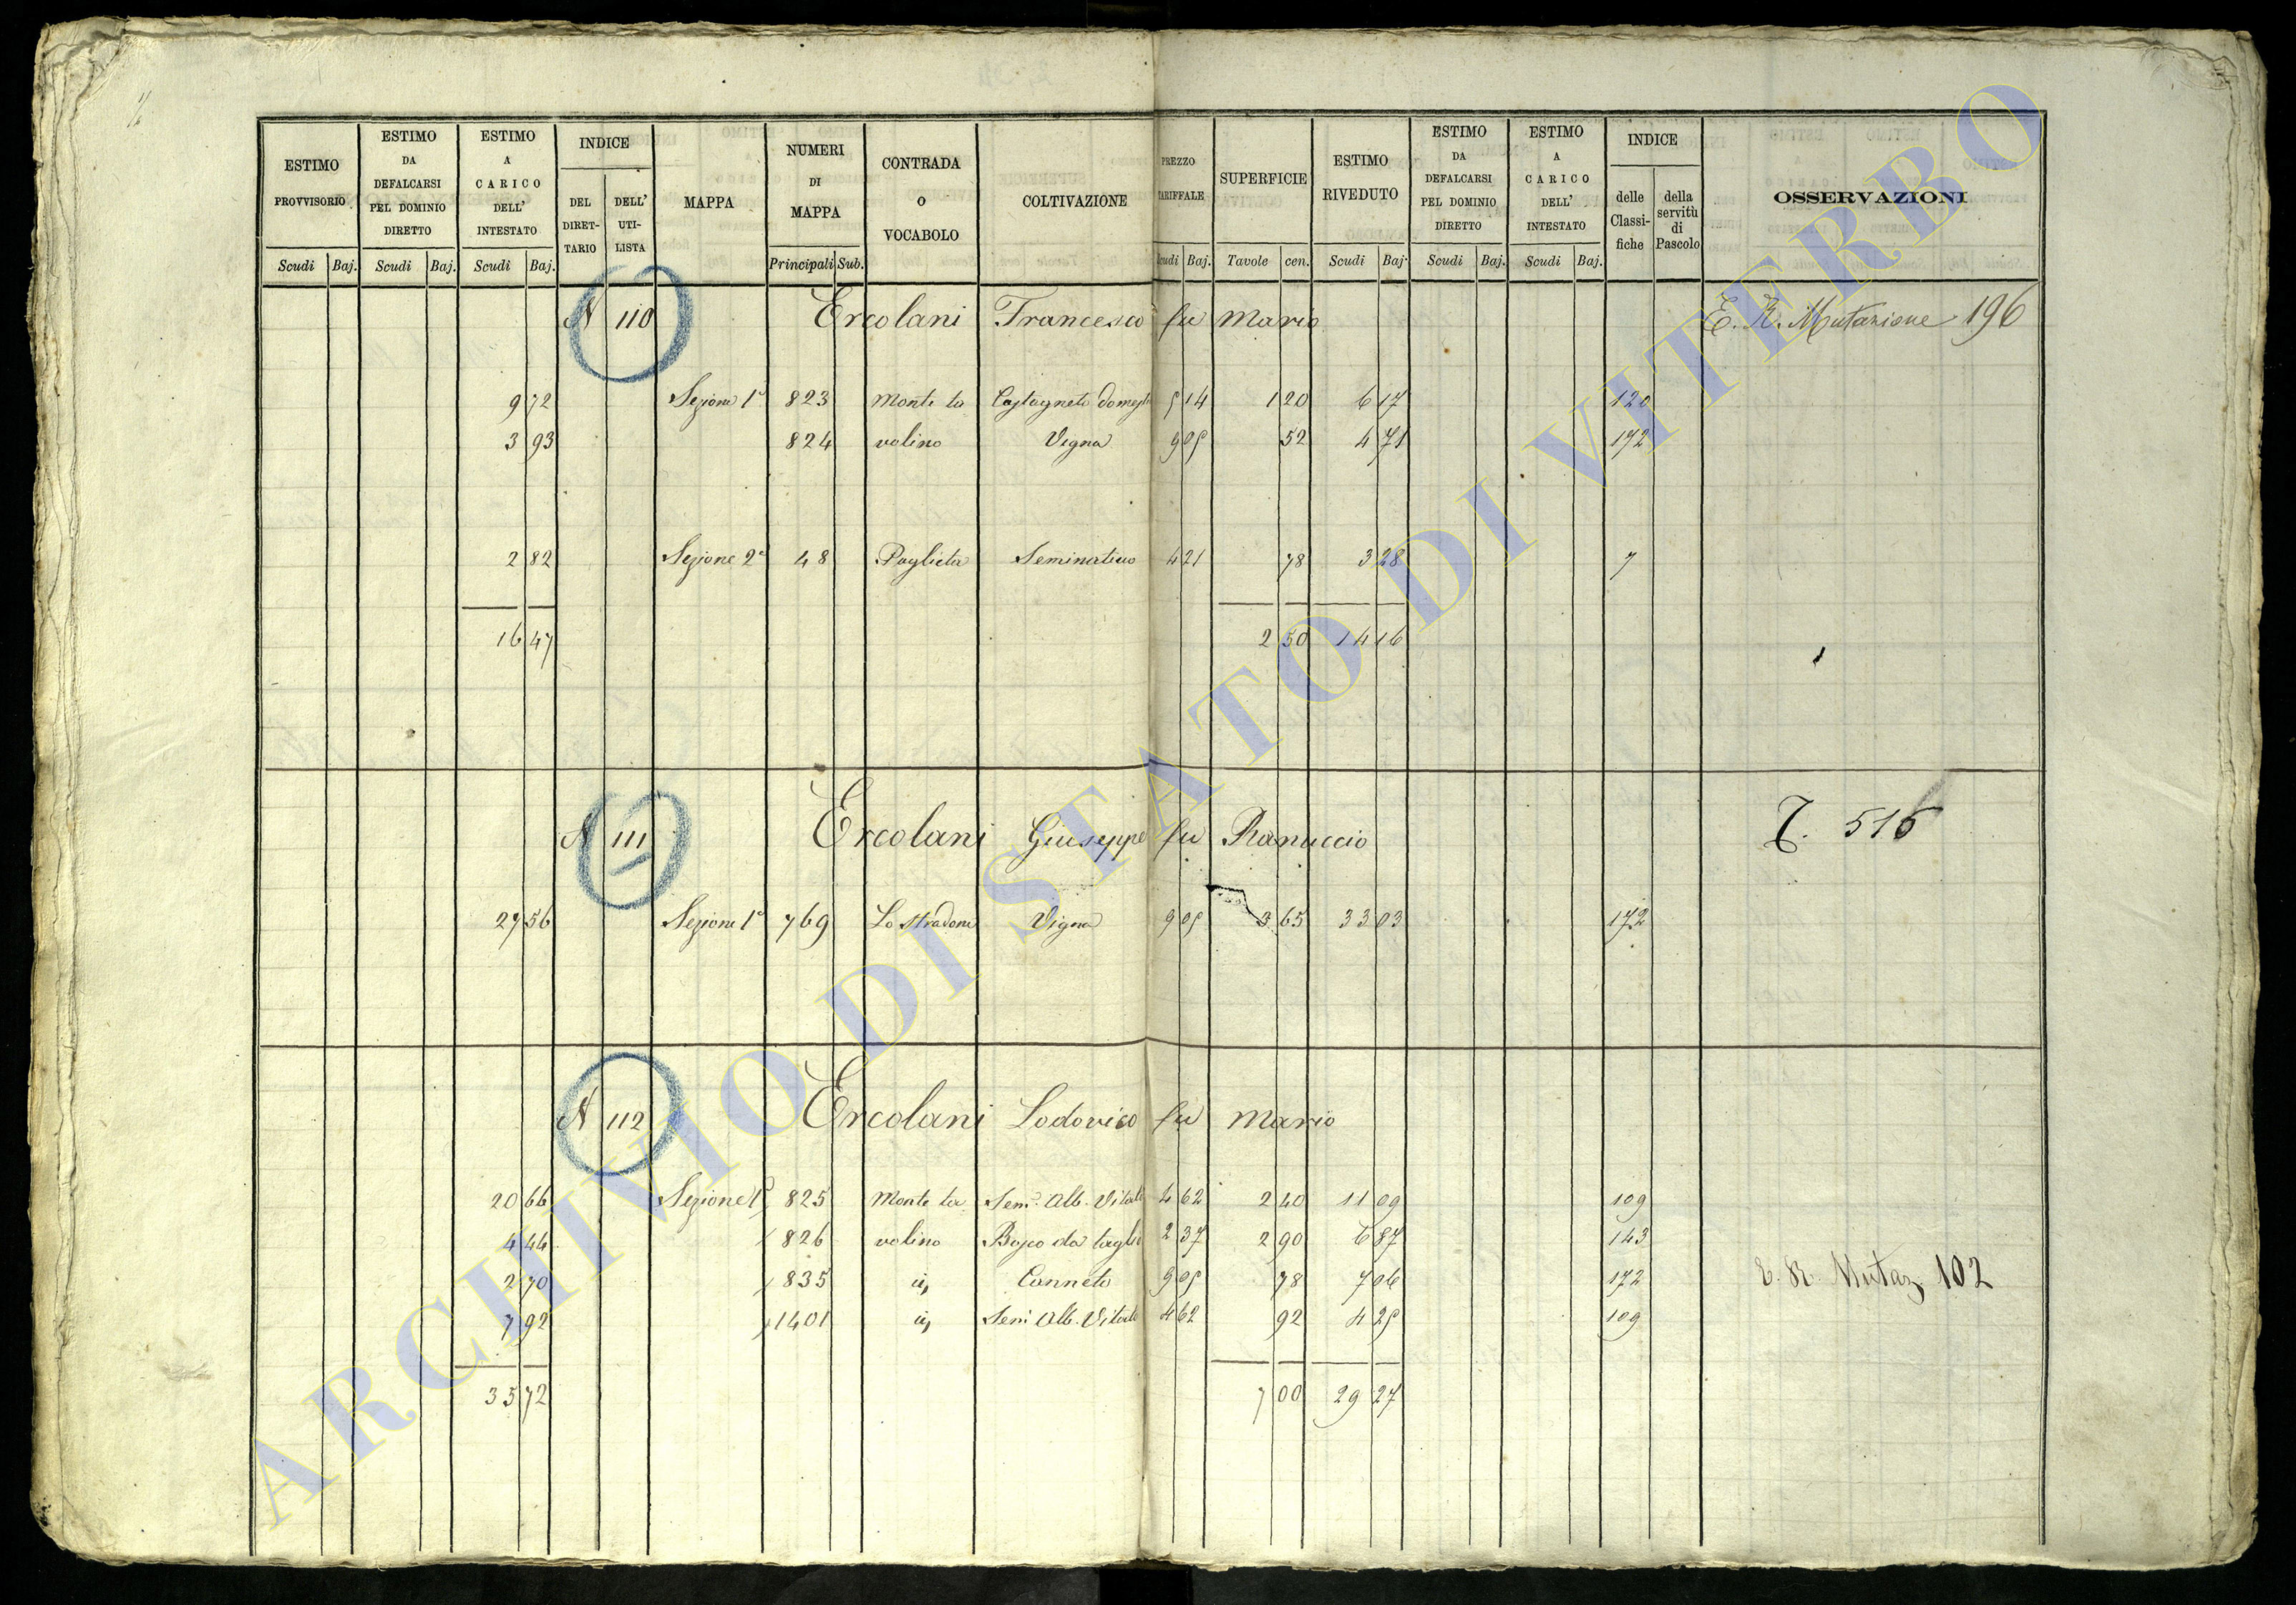 ESTIMO PROVVISORIO Scudi Baj.
ESTIMO DA DEFALCARSI PEL DOMINIO DIRETTO Scudi Baj.
ESTIMO A CARICO DELL' INTESTATO Scudi Baj.
INDICE DEL DIRETTARIO DELL' UTILISTA
MAPPA
NUMERI DI MAPPA Principali Sub.
CONTRADA O VOCABOLO
COLTIVAZIONE
PREZZO TARIFFALE Scudi Baj.
SUPERFICIE Tavole cen.
ESTIMO RIVEDUTO Scudi Baj.
ESTIMO DA DEFALCARSI PEL DOMINIO DIRETTO Scudi Baj.
ESTIMO A CARICO DELL' INTESTATO Scudi Baj.
INDICE delle Classifiche della servitù di Pascolo
OSSERVAZIONI
N 110 Ercolani Francesco fu Mario E. R. Mutazione 196
9 72 Sezione 1ª 823 Monte ta Castagneto domest 5 14 1 20 6 17 120
3 93 824 volino Vigna 9 05 52 4 71 172
2 82 Sezione 2ª 48 Paglieta Seminativo 4 21 78 3 28 7
16 47 2 50 14 16
N 111 Ercolani Giuseppe fu Ranuccio T. 516
27 56 Sezione 1ª 769 Lo Stradone Vigna 9 05 3 65 33 03 172
N 112 Ercolani Lodovico fu Mario
20 66 Sezione 1ª 825 Monte ta Sem. Alb. Vitato 4 62 2 40 11 09 109
4 44 826 volino Bosco da taglio 2 37 2 90 6 87 143
2 70 835 id Canneto 9 05 78 7 06 172 E. R. Mutaz 102
7 92 1401 id Sem Alb. Vitato 4 62 92 4 25 109
35 72 7 00 29 27
ARCHIVIO DI STATO DI VITERBO